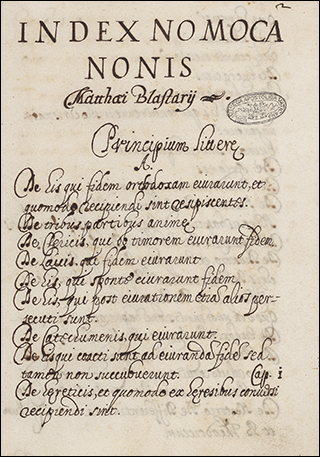 2
INDEX NOMOCA
NONIS
Matthæi Blastarij
Principium litteræ
A.
De iis qui fidem orthodoxam eiurarunt, et
quomodo recipiendi sint resipiscentes.
De tribus partibus animę
De Clericis, qui ob timorem eiurarunt fidem
De Laicis, qui fidem eiurarunt
De iis, qui sponte eiurarunt fidem
De iis, qui post eiurationem etiā alios per-
secuti sunt.
De Catecumenis, qui eiurarunt.
De iis qui coacti sunt ad eiurandā fidē sed
tamen non succubuerunt. Cap. i
De Hęreticis, et quomodo ex hęresibus conversi
recipiendi sint.